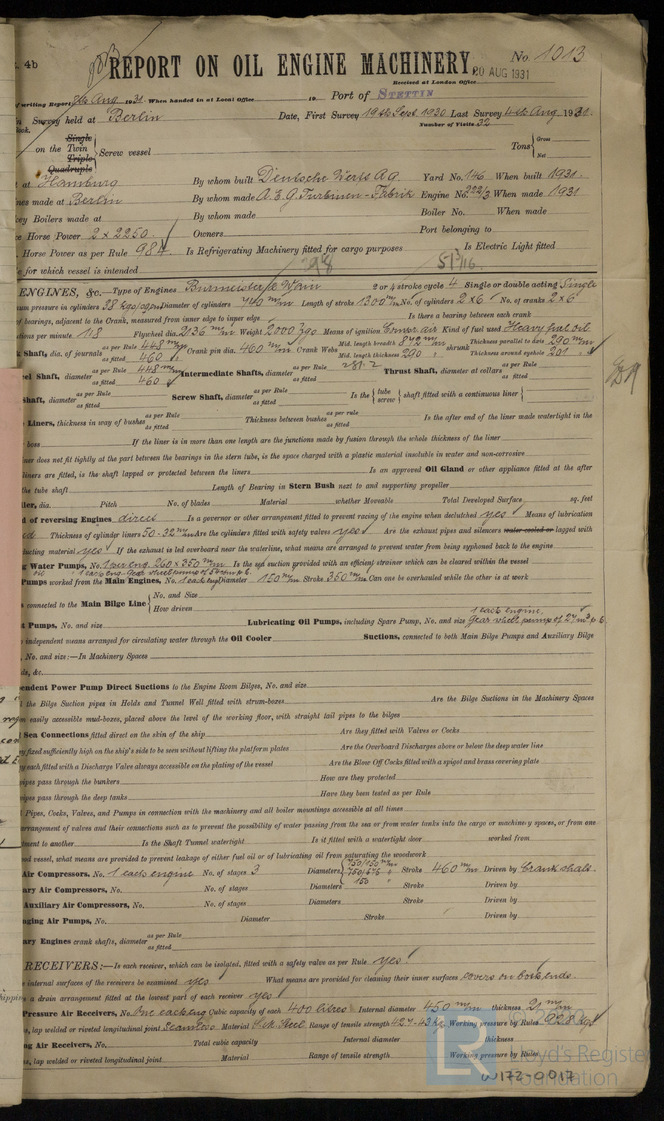 4b
REPORT ON OIL ENGINE MACHINERY.
No. 1013
20 AUG 1931
Received at London Office
of writing Report, Aug 1931. When handed in at Local Office 19 Port of STETTIN
Survey held at Berlin Date, First Survey 19th Sept. 1930 Last Survey 4th Aug. 1931.
Book. Number of Visits 32
on the Single Twin Triple Quadruple Screw vessel Tons Gross Net
at Hamburg By whom built Deutsche Werft A.G. Yard No. 146 When built 1931.
made at Berlin By whom made A.E.G. Turbinen-Fabrik Engine No. 222/3 When made 1931
Boilers made at By whom made Boiler No. When made
Horse Power 2 x 2250. Owners Port belonging to
Horse Power as per Rule 984 Is Refrigerating Machinery fitted for cargo purposes Is Electric Light fitted
for which vessel is intended
ENGINES, &c.—Type of Engines Burmeister & Wain 2 or 4 stroke cycle 4 Single or double acting Single
pressure in cylinders Diameter of cylinders 740 m/m Length of stroke 1300 m/m No. of cylinders 2 x 6 No. of cranks 2 x 6
of bearings, adjacent to the Crank, measured from inner edge to inner edge Is there a bearing between each crank
per minute 118 Flywheel dia. 2136 m/m Weight 2000 kgs Means of ignition Compr. air Kind of fuel used Heavy fuel oil
Shaft, dia. of journals as per Rule 448 m/m as fitted 460 Crank pin dia. 460 m/m Crank Webs Mid. length breadth 872 m/m Mid. length thickness 290 shrunk Thickness parallel to axis 290 m/m Thickness around eyehole 201
Shaft, diameter as per Rule 448 m/m as fitted 460 Intermediate Shafts, diameter as per Rule as fitted Thrust Shaft, diameter at collars as per Rule as fitted
Shaft, diameter as per Rule as fitted Screw Shaft, diameter as per Rule as fitted Is the tube screw shaft fitted with a continuous liner
Liners, thickness in way of bushes as per Rule as fitted Thickness between bushes as per rule as fitted Is the after end of the liner made watertight in the
boss If the liner is in more than one length are the junctions made by fusion through the whole thickness of the liner
does not fit tightly at the part between the bearings in the stern tube, is the space charged with a plastic material insoluble in water and non-corrosive
liners are fitted, is the shaft lapped or protected between the liners Is an approved Oil Gland or other appliance fitted at the after
the tube shaft Length of Bearing in Stern Bush next to and supporting propeller
dia. Pitch No. of blades Material whether Moveable Total Developed Surface sq. feet
of reversing Engines direct Is a governor or other arrangement fitted to prevent racing of the engine when declutched yes Means of lubrication
Thickness of cylinder liners 50-32 m/m Are the cylinders fitted with safety valves yes Are the exhaust pipes and silencers water cooled or lagged with
material yes If the exhaust is led overboard near the waterline, what means are arranged to prevent water from being syphoned back to the engine
Water Pumps, No. 1 per eng. 260 x 350 m/m Is the sea suction provided with an efficient strainer which can be cleared within the vessel
Pumps worked from the Main Engines, No. 1 each eng Diameter 150 m/m Stroke 350 m/m Can one be overhauled while the other is at work
connected to the Main Bilge Line No. and Size How driven
Pumps, No. and size Lubricating Oil Pumps, including Spare Pump, No. and size 1 each engine, gear wheel pump of 27 m³
independent means arranged for circulating water through the Oil Cooler Suctions, connected to both Main Bilge Pumps and Auxiliary Bilge
No. and size:—In Machinery Spaces
Independent Power Pump Direct Suctions to the Engine Room Bilges, No. and size
the Bilge Suction pipes in Holds and Tunnel Well fitted with strum-boxes Are the Bilge Suctions in the Machinery Spaces
easily accessible mud-boxes, placed above the level of the working floor, with straight tail pipes to the bilges
Sea Connections fitted direct on the skin of the ship Are they fitted with Valves or Cocks
fixed sufficiently high on the ship's side to be seen without lifting the platform plates Are the Overboard Discharges above or below the deep water line
each fitted with a Discharge Valve always accessible on the plating of the vessel Are the Blow Off Cocks fitted with a spigot and brass covering plate
pipes pass through the bunkers How are they protected
pipes pass through the deep tanks Have they been tested as per Rule
Pipes, Cocks, Valves, and Pumps in connection with the machinery and all boiler mountings accessible at all times
arrangement of valves and their connections such as to prevent the possibility of water passing from the sea or from water tanks into the cargo or machinery spaces, or from one
to another Is the Shaft Tunnel watertight Is it fitted with a watertight door worked from
vessel, what means are provided to prevent leakage of either fuel oil or of lubricating oil from saturating the woodwork
Air Compressors, No. 1 each engine No. of stages 3 Diameters 750/150 m/m 750/675 150 Stroke 460 m/m Driven by Crank shaft.
Air Compressors, No. No. of stages Diameters Stroke Driven by
Auxiliary Air Compressors, No. No. of stages Diameters Stroke Driven by
Air Pumps, No. Diameter Stroke Driven by
Engines crank shafts, diameter as per Rule as fitted
RECEIVERS:—Is each receiver, which can be isolated, fitted with a safety valve as per Rule yes
internal surfaces of the receivers be examined yes What means are provided for cleaning their inner surfaces covers on both ends.
a drain arrangement fitted at the lowest part of each receiver yes
Pressure Air Receivers, No. One each eng Cubic capacity of each 400 litres Internal diameter 450 m/m thickness 21 m/m
lap welded or riveted longitudinal joint Seamless Material S.M. Steel Range of tensile strength Working pressure by Rules
Air Receivers, No. Total cubic capacity Internal diameter thickness
lap welded or riveted longitudinal joint Material Range of tensile strength Working pressure by Rules
LR Lloyd's Register Foundation
W172-0017